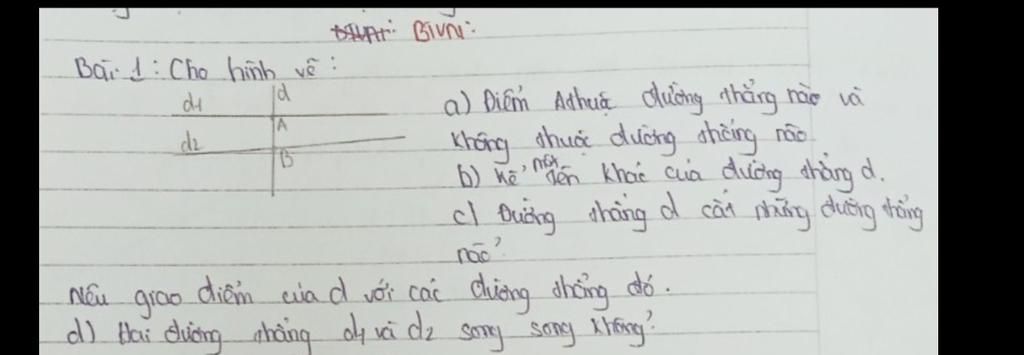 BTVN:
Bài 1: Cho hình vẽ:
d1 d
A
d2
B
a) Điểm A thuộc đường thẳng nào và
không thuộc đường thẳng nào.
b) Kể một tên khác của đường thẳng d.
c) Đường thẳng d cắt những đường thẳng
nào?
Nêu giao điểm của d với các đường thẳng đó.
d) Hai đường thẳng d1 và d2 song song không?